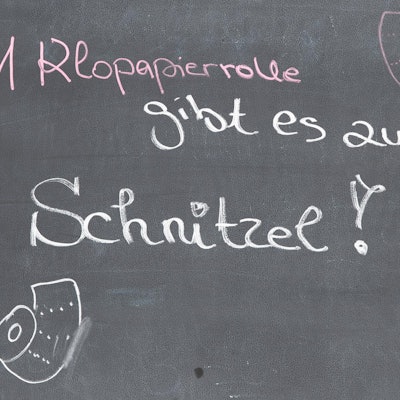 1 Klopapierrolle
gibt es zu
Schnitzel!